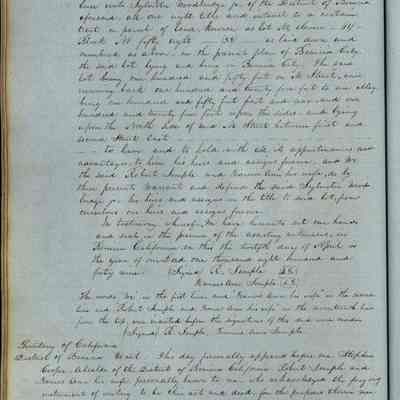 unto Sylvester Woodbridge jr of the District of Benicia
aforesaid, all our right title and interest to a certain
tract or parcel of land, known as lot No eleven - 11 -
Block No fifty eight - 58 - as laid down and
numbered as above on the general plan of Benicia City
the said lot lying and being in Benicia City. The said
lot being one hundred and fifty feet on M Street, and
running back one hundred and twenty five feet to an alley
being one hundred and fifty feet front and rear and one
hundred and twenty five feet upon the sides and lying
upon the North side of said M Street between first and
second Street East
To have and to hold with all its appurtenances and
advantages, to him, his heirs and assigns forever, and We
the said Robert Semple and his wife, do by
these presents warrant and defend the said Sylvester Wood
bridge jr his heirs and assigns in the title to said lot, from
ourselves our heirs and assigns forever
In testimony whereof, We have hereunto set our hands
and seals in the presence of the attesting witnesses, in
Benicia California on this the day of April in
the year of our Lord one thousand eight hundred and
forty nine (Signed) R. Semple
Semple
The words "We" in the first line and his wife" in the
line and Robert Semple and his wife in the line
from the top, were inserted before the signature of this deed was made
(Signed) R. Semple, Semple
Territory of California
District of Benicia This day personally appeared before me Stephen
Cooper, Alcalde of the District of Benicia California Robert Semple and
his wife personally known to me who acknowledged the foregoing
instrument of writing to be their act and deed, for the purposes therein men